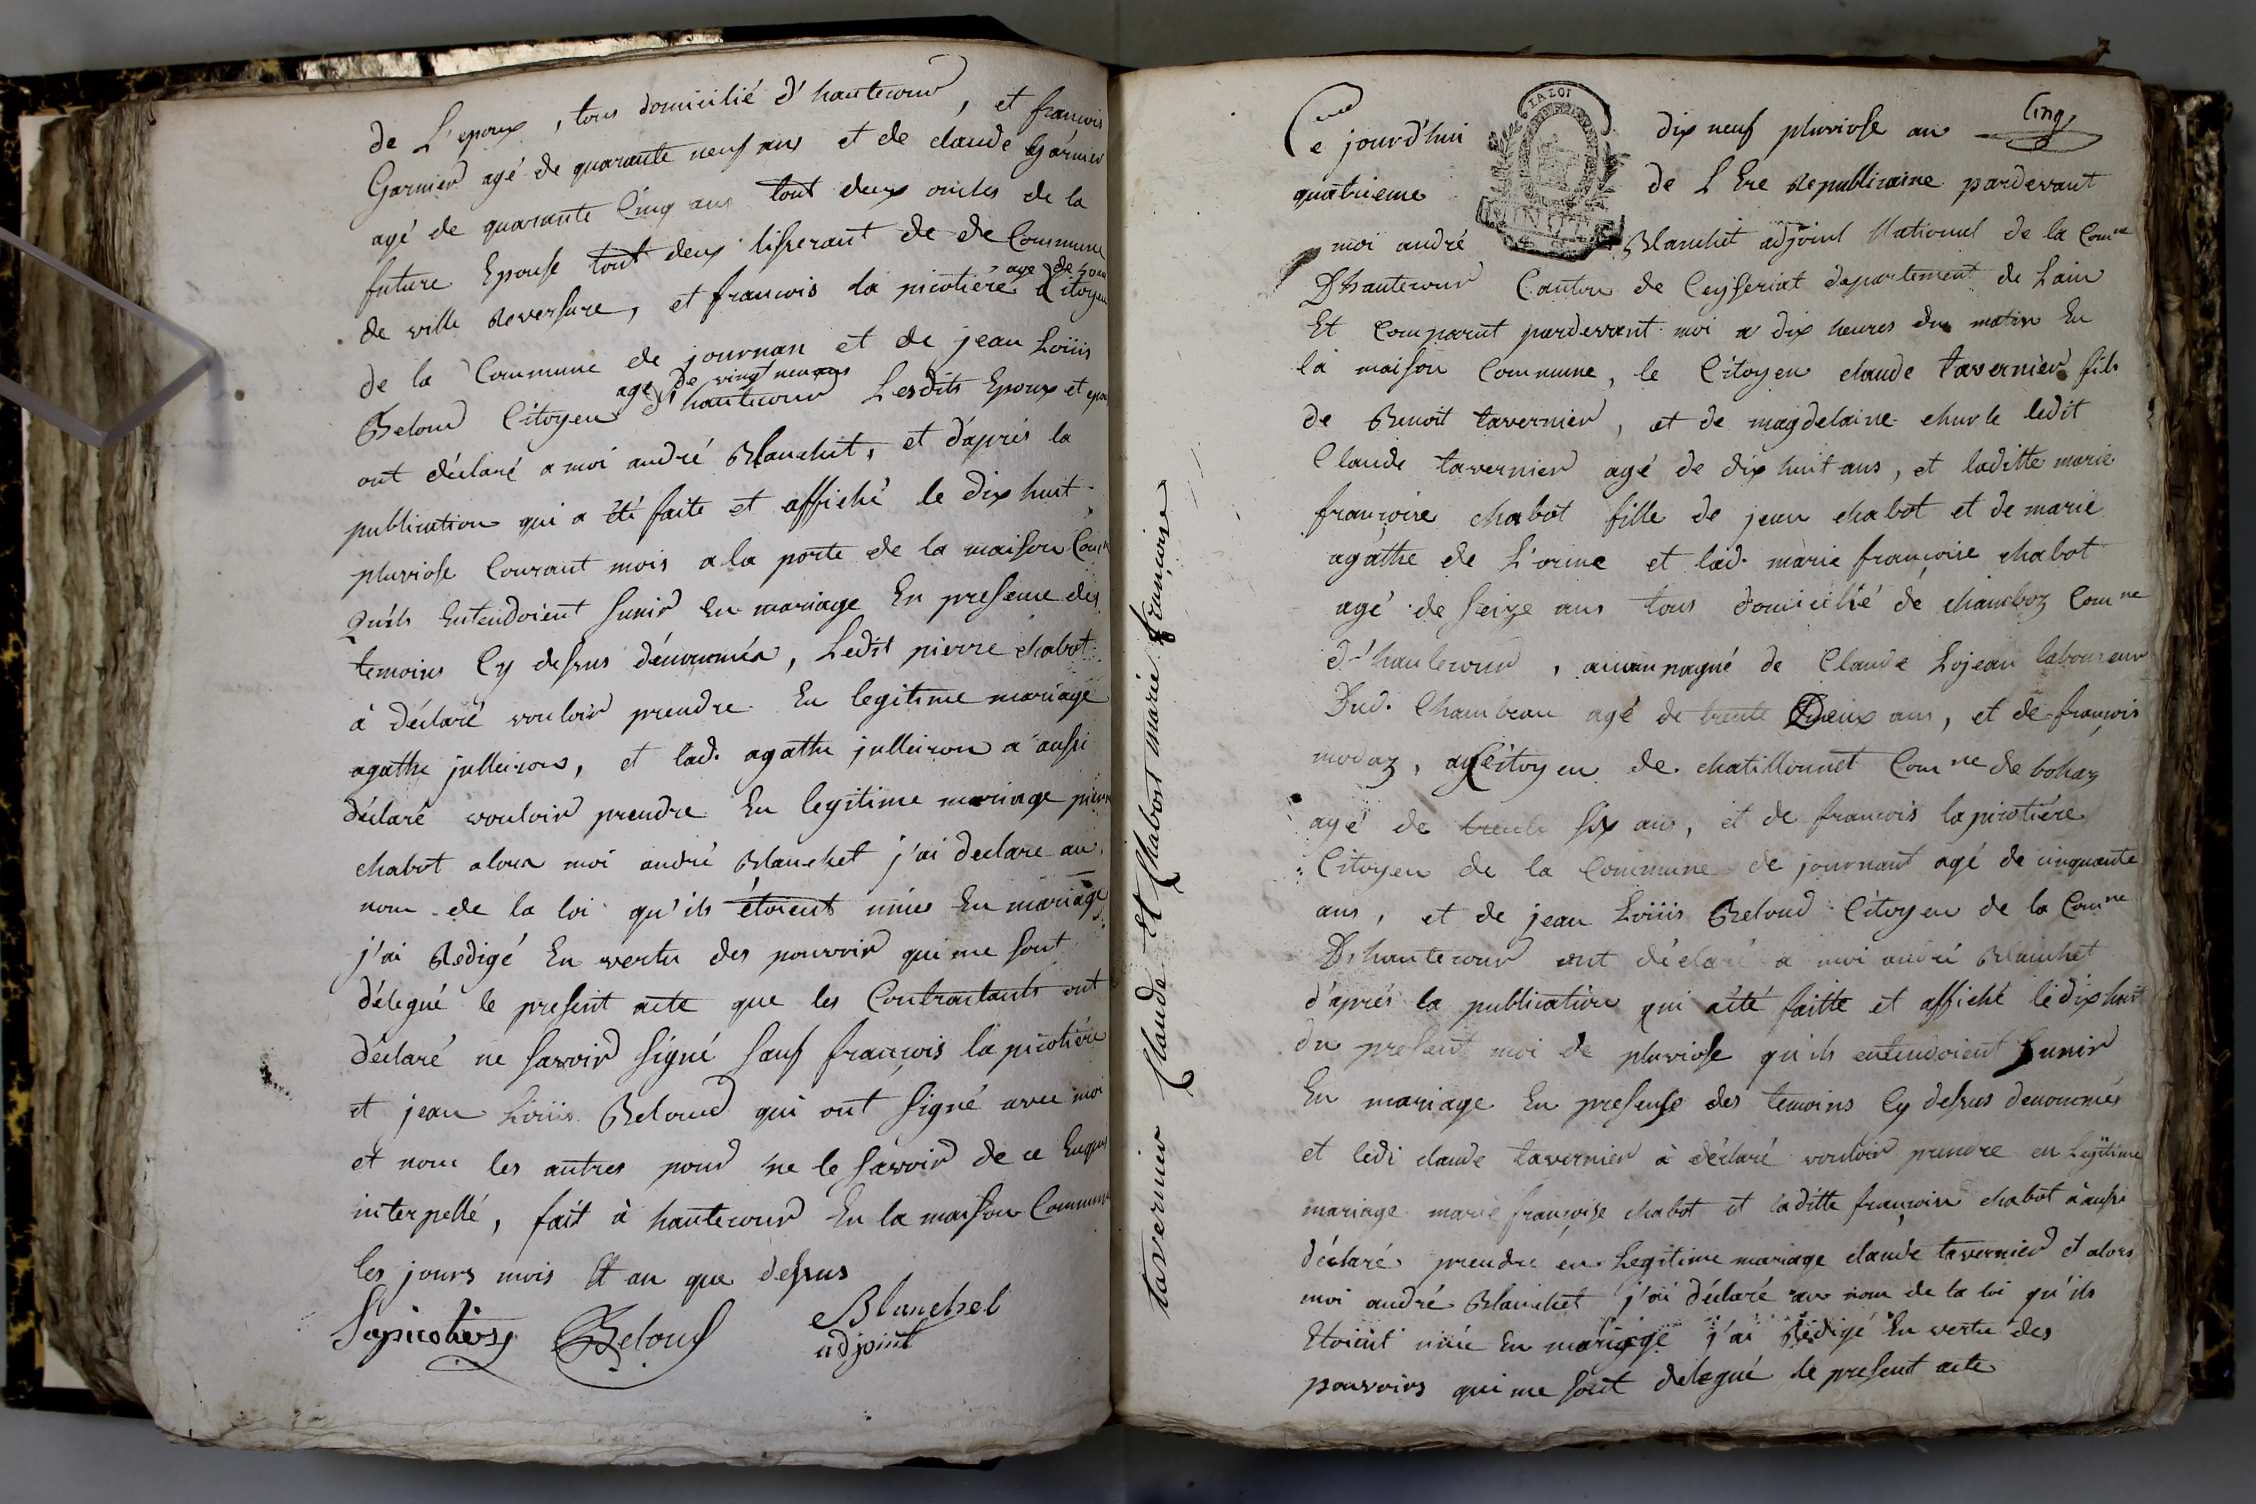 de L'epoux, tous domicilié d'hautecour, et francois
Garnier agé de quarante neuf ans et de claude Garnier
agé de quarante Cinq ans tout deux oncles de la
future Epouse tout deux tisserant de de Commune
de ville Reversure, et francois la picotiére age de Citoyen
de la Commune de journan et de jean Loüis
age de vingt neu ans
Beloud Citoyen d'hautecour Lesdits Epoux et epou
ont déclaré a moi andré Blanchet, et d'aprés la
publication qui a été faite et affiché le dix huit
pluviose Courant mois a la porte de la maison Com
Quils Entendoient sunir En mariage En presence des
temoins Cy dessus dénommés, Ledit pierre chabot
à déclaré vouloir prendre En legitime mariage
agathe julleiron, et lad. agathe julleiron a aussi
déclaré vouloir prendre En legitime mariage pierre
chabot alors moi andré Blanchet j'ai declare au
nom de la loi qu'ils étoient unies En mariage
j'ai Redigé En vertu des pouvoir qui me sont
délegué le present acte que les Contractants ont
déclaré ne savoir signé sauf françois la picotiére
et jean Loüis Beloud qui ont signé avec moi
et nom les autres pour ne le savoir de ce Enquis
interpellé, fait à hautecour En la maison Commune
les jours mois Et an que dessus
Lapicotiere Beloud Blanchet
adjoint
tavernier Claude et Chabot marie françoise
LA LOI
Cinq
Ce jourd'hui dix neuf pluviose an
quatrieme de L Ere Republicaine pardevant
moi andré Blanchet adjoint National de la Comne
D'hautecour Canton de Ceyseriat departement de Lain
Et Comparut pardevant moi a dix heures du matin En
la maison Commune, le Citoyen claude tavernier fils
de Benoit tavernier, et de magdelaine churle ledit
Claude tavernier agé de dix huit ans, et laditte marie
françoise chabot fille de jean chabot et de marie
agathe de L'orme et lad. marie françoise chabot
agé de seize ans tous domicilié de chamboz Comne
d'hautecour, accompagné de Claude Lojean laboureur
Dud. Chambeau agé de trente Deux ans, et de françois
modaz, Citoyen de chatillonnet Comne de bohaz
agé de trente six ans, et de francois lapicotiére
Citoyen de la Commune de journant agé de cinquante
ans, et de jean Loüis Beloud Citoyen de la Comne
D'hautecour ont déclaré a moi andré Blanchet
d'aprés la publication qui a été faitte et affiché le dix huit
du present moi de pluviose qu'ils entendoient sunir
En mariage En presense des temoins Cy dessus denommés
et ledi claude tavernier à déclaré vouloir prendre en Legitime
mariage marie françoise chabot et laditte françoise chabot a aussi
déclaré prendre en Legitime mariage claude tavernier et alors
moi andré Blanchet j'ai déclaré au nom de la loi qu'ils
Etoient unie En mariage j'ai Redigé En vertu des
pouvoirs qui me sont delegué le present acte